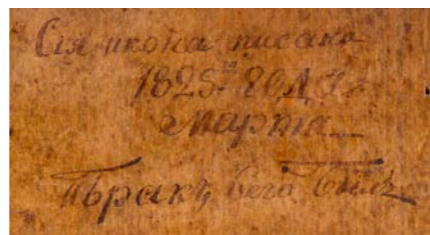 Сія икона писана
1825 го года
Марта
бракъ сего былъ